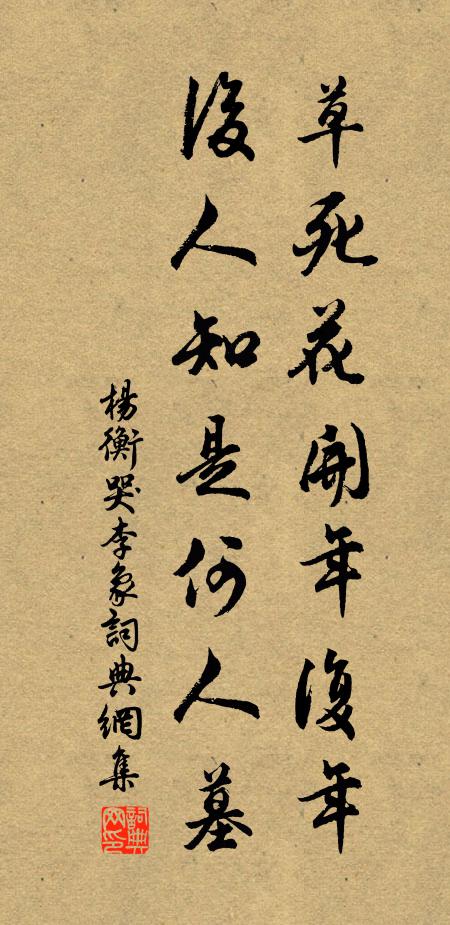 草死花開年復年
後人知是何人墓
楊衡哭李象詞典網集
詞典網印